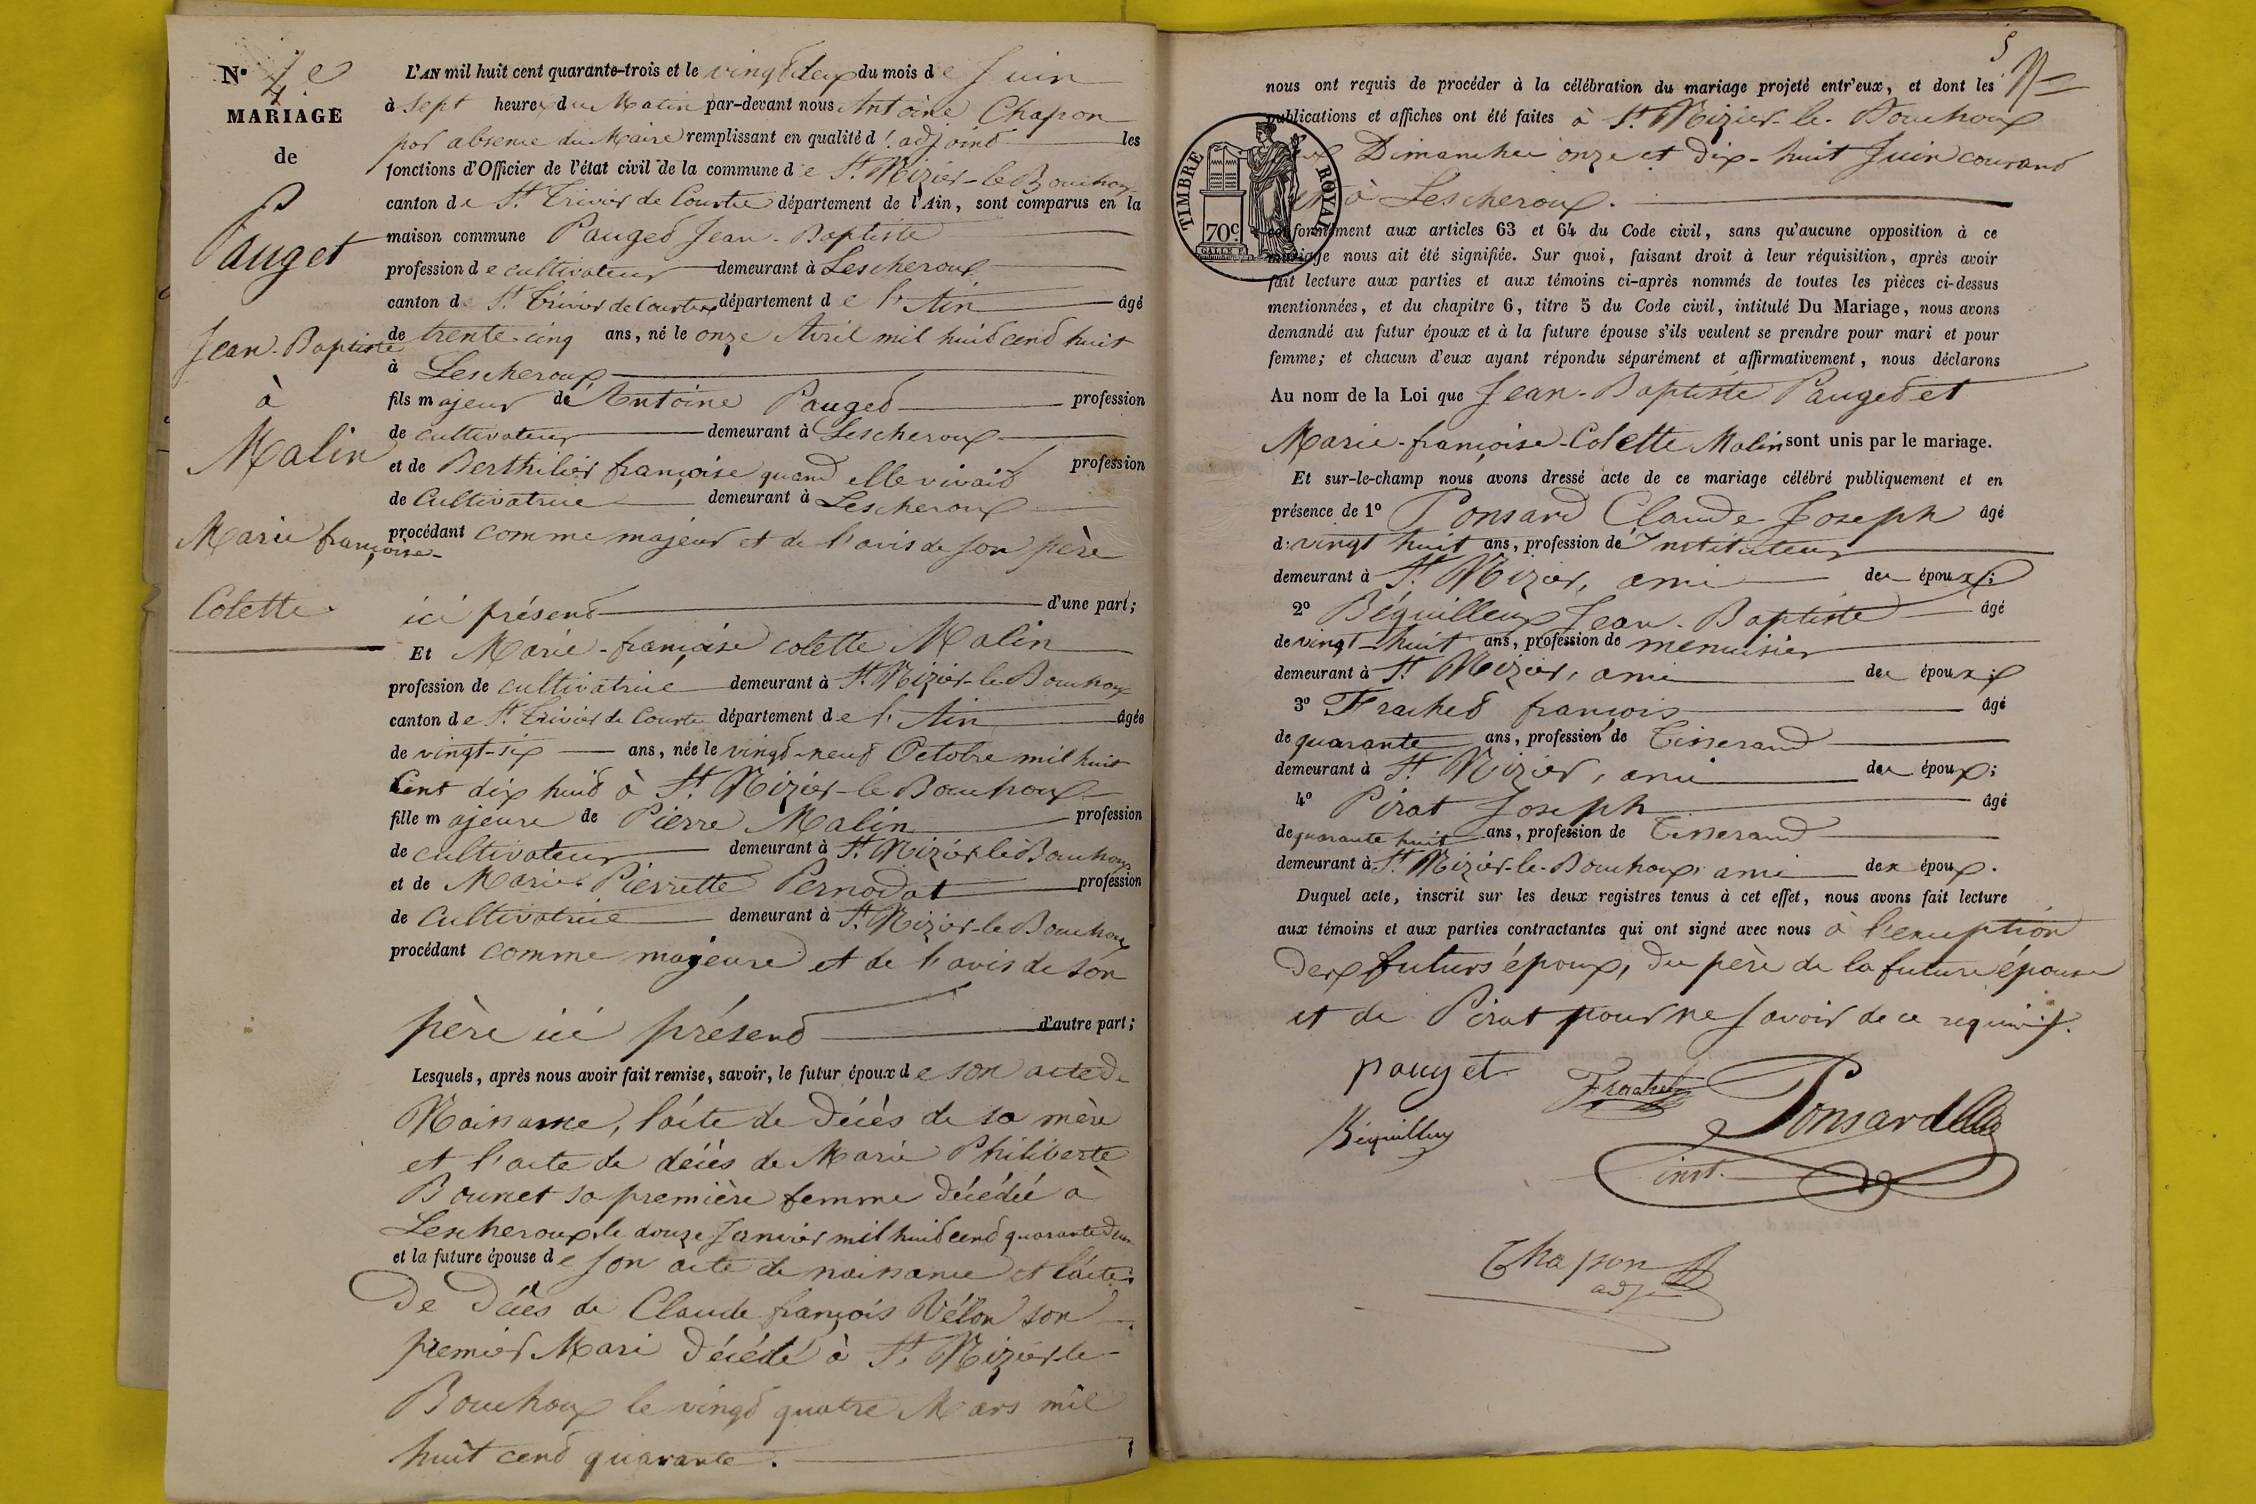 N° 4e
MARIAGE
de
Pauget
Jean-Baptiste
à
Malin
Marie françoise-
Colette.
L'AN mil huit cent quarante-trois et le vingt deux du mois de Juin
à Sept heures du Matin par-devant nous Antoine Chapon
par absence du Maire remplissant en qualité d'adjoint les
fonctions d'Officier de l'état civil de la commune de St. Nizier-le-Bouchoux
canton de St. Trivier de Courtes département de l'Ain, sont comparus en la
maison commune Pauget Jean-Baptiste
profession de cultivateur demeurant à Lescheroux
canton de St. Trivier de Courtes département de l'Ain âgé
de trente-cinq ans, né le onze Avril mil huit cent huit
à Lescheroux
fils majeur de Antoine Pauget profession
de cultivateur demeurant à Lescheroux
et de Berthilier françoise quand elle vivait profession
de Cultivatrice demeurant à Lescheroux
procédant comme majeur et de l'avis de son père
ici présent d'une part;
Et Marie-françoise colette Malin
profession de cultivatrice demeurant à St. Nizier-le-Bouchoux
canton de St. Trivier de Courtes département de l'Ain âgée
de vingt-six ans, née le vingt-neuf Octobre mil huit
Cent dix huit à St. Nizier-le-Bouchoux
fille majeure de Pierre Malin profession
de cultivateur demeurant à St. Nizier-le-Bouchoux
et de Marie-Pierrette Pernodat profession
de Cultivatrice demeurant à St. Nizier-le-Bouchoux
procédant comme majeure et de l'avis de son
père ici présent d'autre part;
Lesquels, après nous avoir fait remise, savoir, le futur époux de son acte de
Naissance, l'acte de décès de sa mère
et l'acte de décès de Marie Philiberte
Bounet sa première femme décédée à
Lescheroux le douze Janvier mil huit cent quarante deux
et la future épouse de son acte de naissance et l'acte
De Décès de Claude françois Vélon son
premier Mari décédé à St. Nizier-le-
Bouchoux le vingt quatre Mars mil
huit cent quarante.
5
nous ont requis de procéder à la célébration du mariage projeté entr'eux, et dont les
publications et affiches ont été faites à St. Nizier-le-Bouchoux
Dimanches onze et dix-huit Juin courant
et à Lescheroux.
TIMBRE ROYAL
70c
conformément aux articles 63 et 64 du Code civil, sans qu'aucune opposition à ce
mariage nous ait été signifiée. Sur quoi, faisant droit à leur réquisition, après avoir
fait lecture aux parties et aux témoins ci-après nommés de toutes les pièces ci-dessus
mentionnées, et du chapitre 6, titre 5 du Code civil, intitulé Du Mariage, nous avons
demandé au futur époux et à la future épouse s'ils veulent se prendre pour mari et pour
femme; et chacun d'eux ayant répondu séparément et affirmativement, nous déclarons
Au nom de la Loi que Jean-Baptiste Pauget et
Marie-françoise-Colette Malin sont unis par le mariage.
Et sur-le-champ nous avons dressé acte de ce mariage célébré publiquement et en
présence de 1° Ponsard Claude-Joseph âgé
de vingt huit ans, profession de Instituteur
demeurant à St. Nizier, ami des époux;
2° Béguilleux Jean-Baptiste âgé
de vingt-huit ans, profession de menuisier
demeurant à St. Nizier, ami des époux;
3° Frachet françois âgé
de quarante ans, profession de Tisserand
demeurant à St. Nizier, ami des époux;
4° Pirat Joseph âgé
de quarante huit ans, profession de Tisserand
demeurant à St. Nizier-le-Bouchoux ami des époux.
Duquel acte, inscrit sur les deux registres tenus à cet effet, nous avons fait lecture
aux témoins et aux parties contractantes qui ont signé avec nous à l'exception
Des futurs époux, du père de la future épouse
et de Pirat pour ne savoir de ce requis.
pauget
Frachet
Ponsard
Béguilleux
inst.
Chapon
adj.